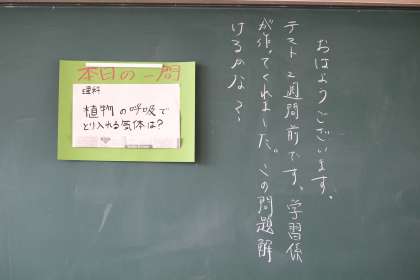 おはようございます。
テスト2週間前です。学習係
が作ってくれました。この問題解
けるかな？
本日の一問
理科
植物の呼吸で
とり入れる気体は?